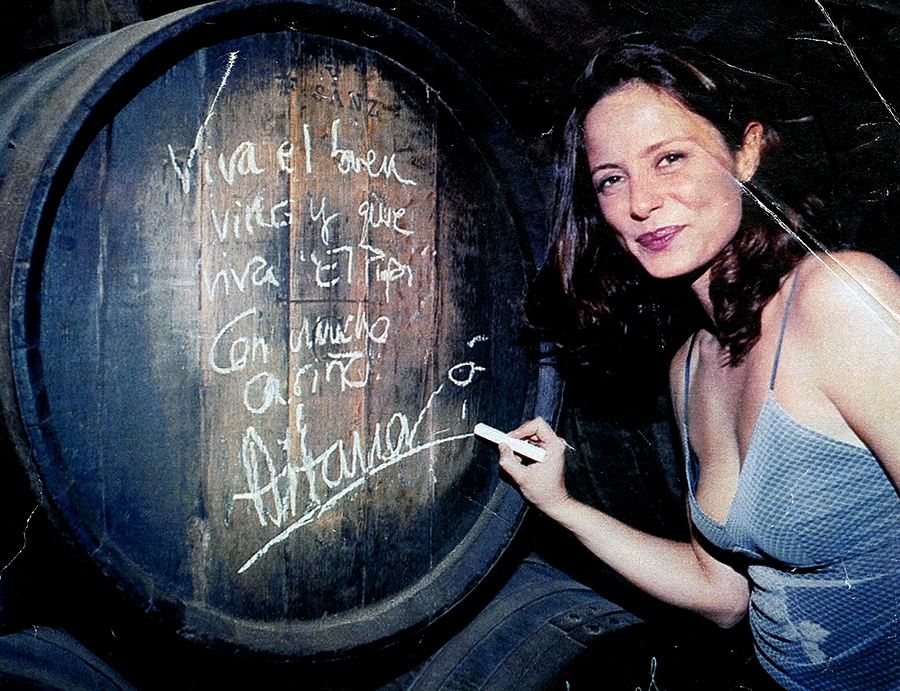 SANZ
Viva el buen
vino y que
viva "El Pipi"
Con mucho
cariño.
Aitana